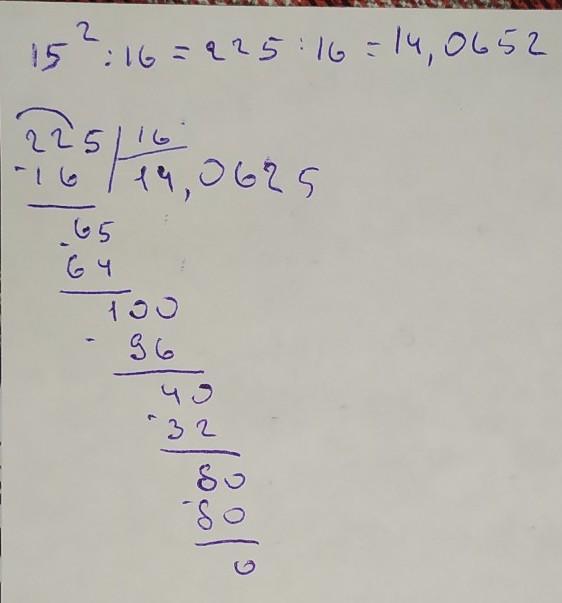 15² : 16 = 225 : 16 = 14,0652
225 | 16
-16 | 14,0625
-65
64
100
- 96
40
-32
80
-80
0